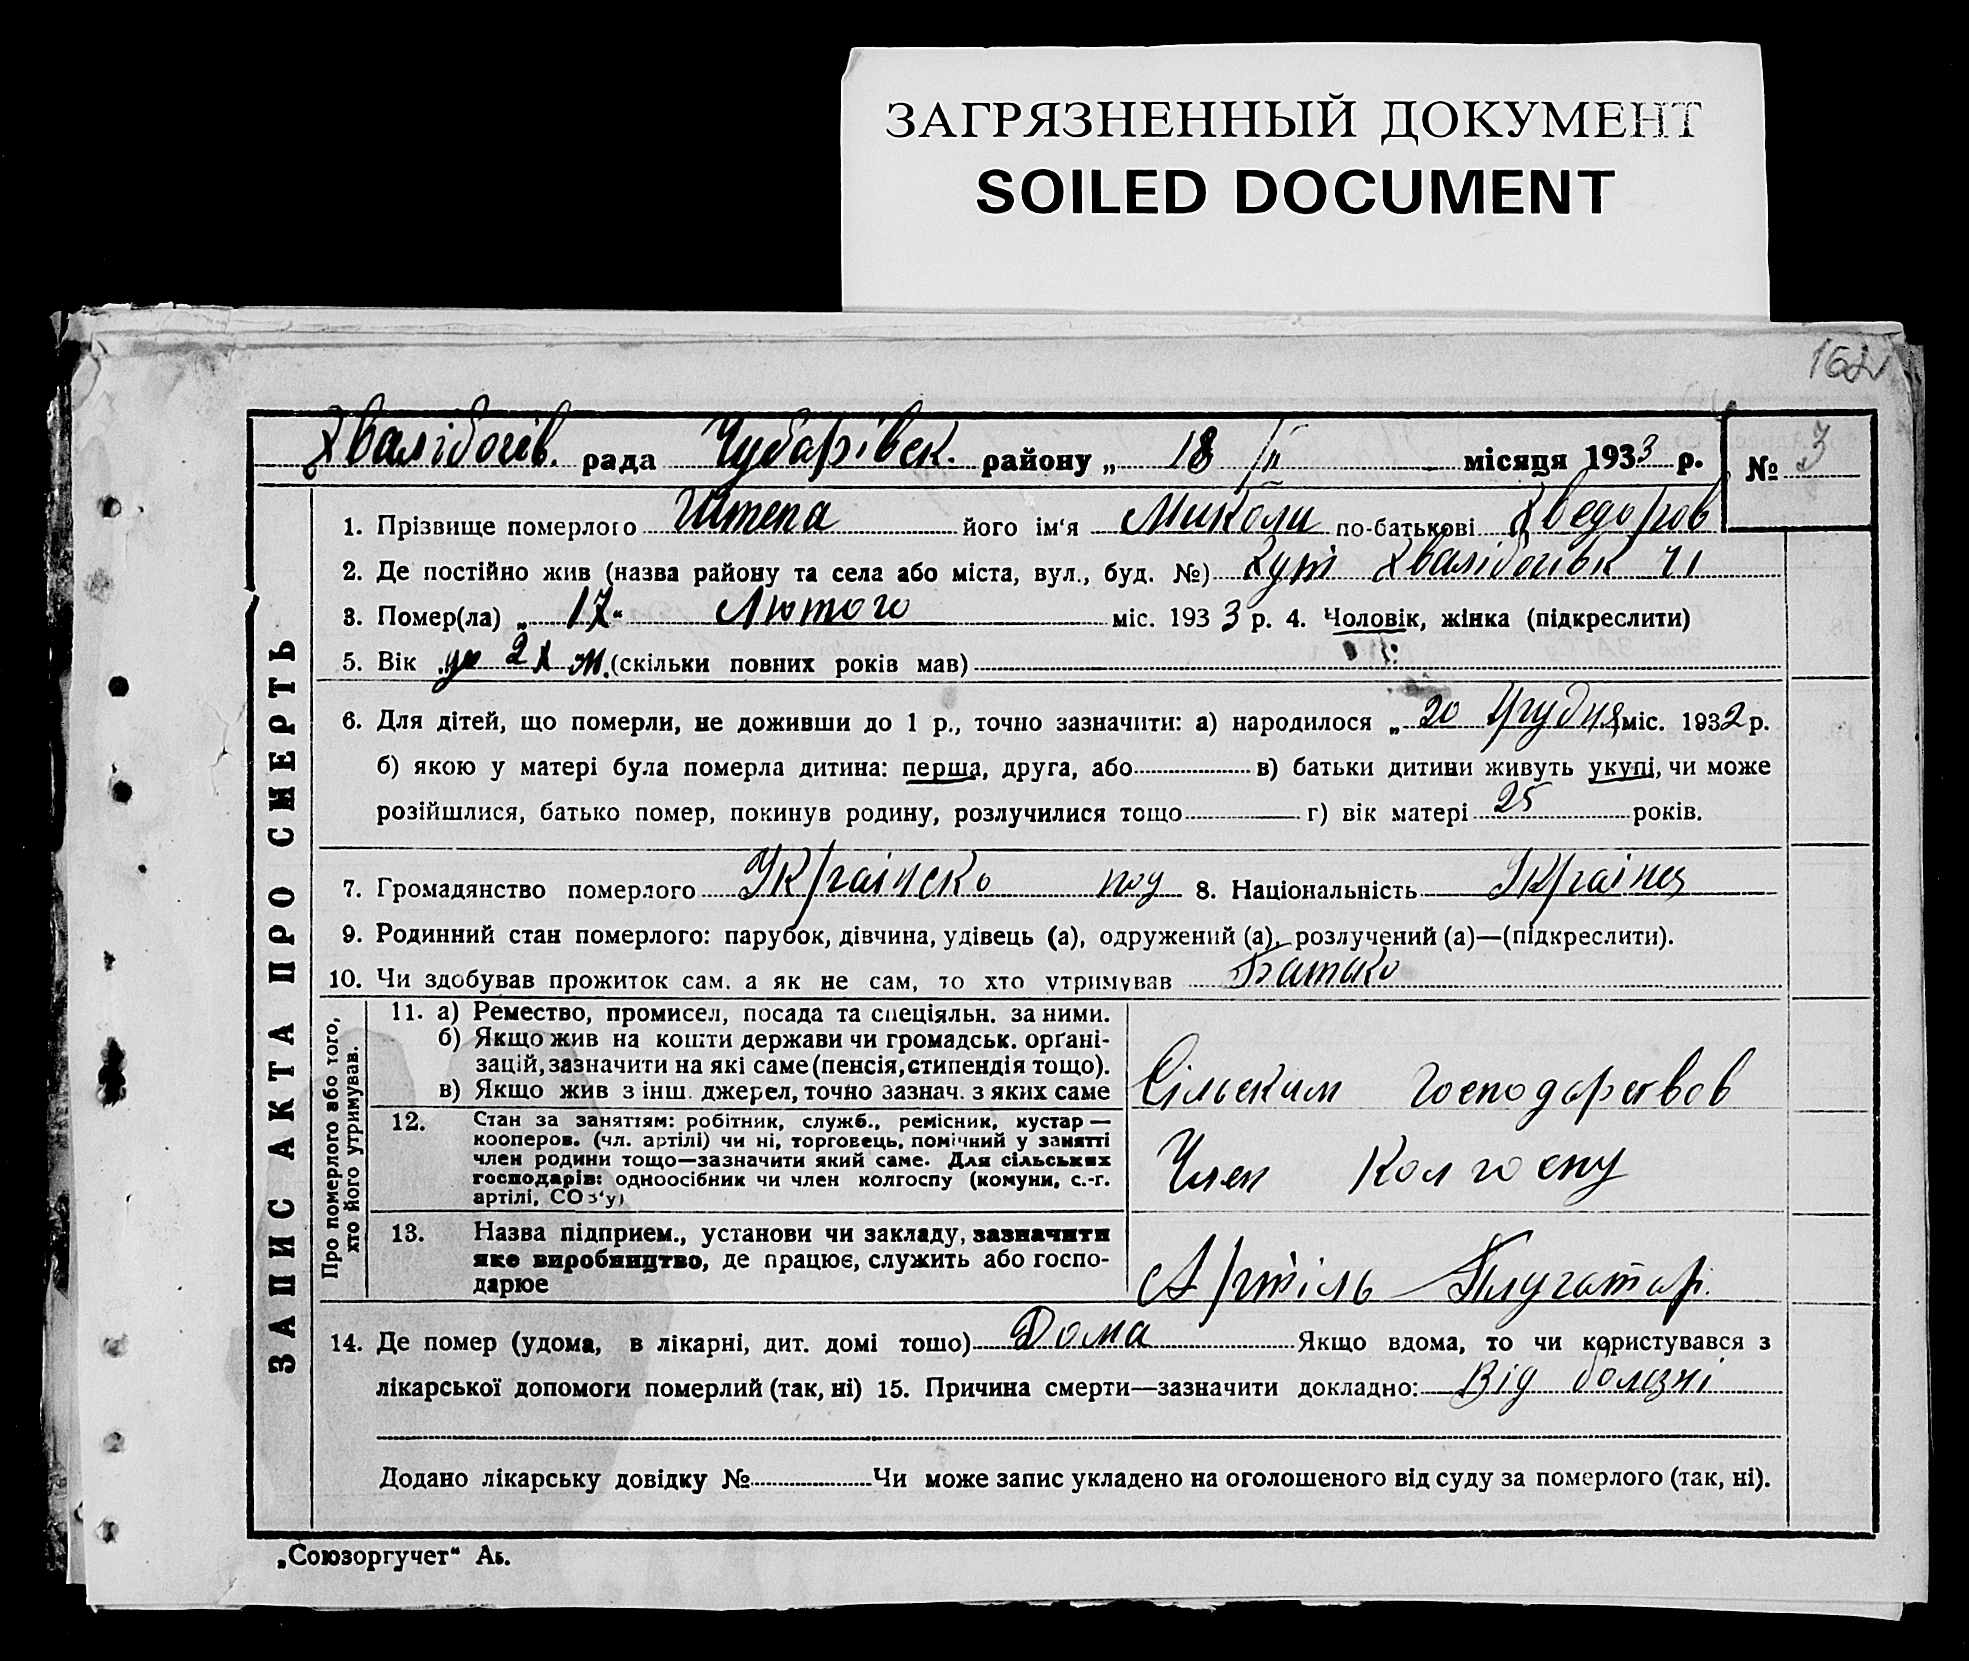 ЗАГРЯЗНЕННЫЙ ДОКУМЕНТ
SOILED DOCUMENT
162
Хвалібогів. рада Чубарівск. району „ 18/II місяця 1933 р. № 3
ЗАПИС АКТА ПРО СМЕРТЬ
1. Прізвище померлого Штепа його ім'я Миколи по-батькові Хведоров
2. Де постійно жив (назва району та села або міста, вул., буд. №) Хут Хвалібогівк
3. Помер(ла) „ 17 “ Лютого міс. 1933 р. 4. Чоловік, жінка (підкреслити)
5. Вік до 2х м. (скільки повних років мав)
6. Для дітей, що померли, не доживши до 1 р., точно зазначити: а) народилося „ 20 Грудня міс. 1932 р.
б) якою у матері була померла дитина: перша, друга, або в) батьки дитини живуть укупі, чи може
розійшлися, батько помер, покинув родину, розлучилися тощо г) вік матері 25 років.
7. Громадянство померлого Украінско 8. Національність Украінец
9. Родинний стан померлого: парубок, дівчина, удівець (а), одружений (а), розлучений (а)—(підкреслити).
10. Чи здобував прожиток сам, а як не сам, то хто утримував Батько
Про померлого або того, хто його утримував.
11. а) Ремество, промисел, посада та спеціяльн. за ними.
б) Якщо жив на кошти держави чи громадськ. орґані-
зацій, зазначити на які саме (пенсія, стипендія тощо).
в) Якщо жив з інш. джерел, точно зазнач. з яких саме
Сільским господарствов
12. Стан за заняттям: робітник, служб., ремісник, кустар—
кооперов. (чл. артілі) чи ні, торговець, помічний у занятті
член родини тощо—зазначити який саме. Для сільських
господарів: одноосібник чи член колгоспу (комуни, с.-г.
артілі, СОЗ'у)
Член Колгоспу
13. Назва підприєм., установи чи закладу, зазначити
яке виробництво, де працює, служить або госпо-
дарює
Артіль Плугатар.
14. Де помер (удома, в лікарні, дит. домі тошо) Дома Якщо вдома, то чи користувався з
лікарської допомоги померлий (так, ні) 15. Причина смерти—зазначити докладно: Від болезні
Додано лікарську довідку № Чи може запис укладено на оголошеного від суду за померлого (так, ні).
„Союзоргучет“ Аб.